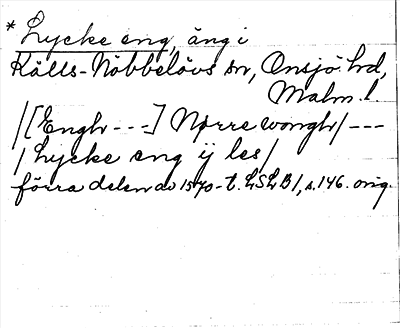 * Lycke eng, äng i
Källs-Nöbbelövs sn, Onsjö hd,
Malm. l.
/[Enghr ---] Nørre wongh/ ---
/ Lycke eng ij les/
förra delen av 1570-t. LSLB 1, s. 146. orig.